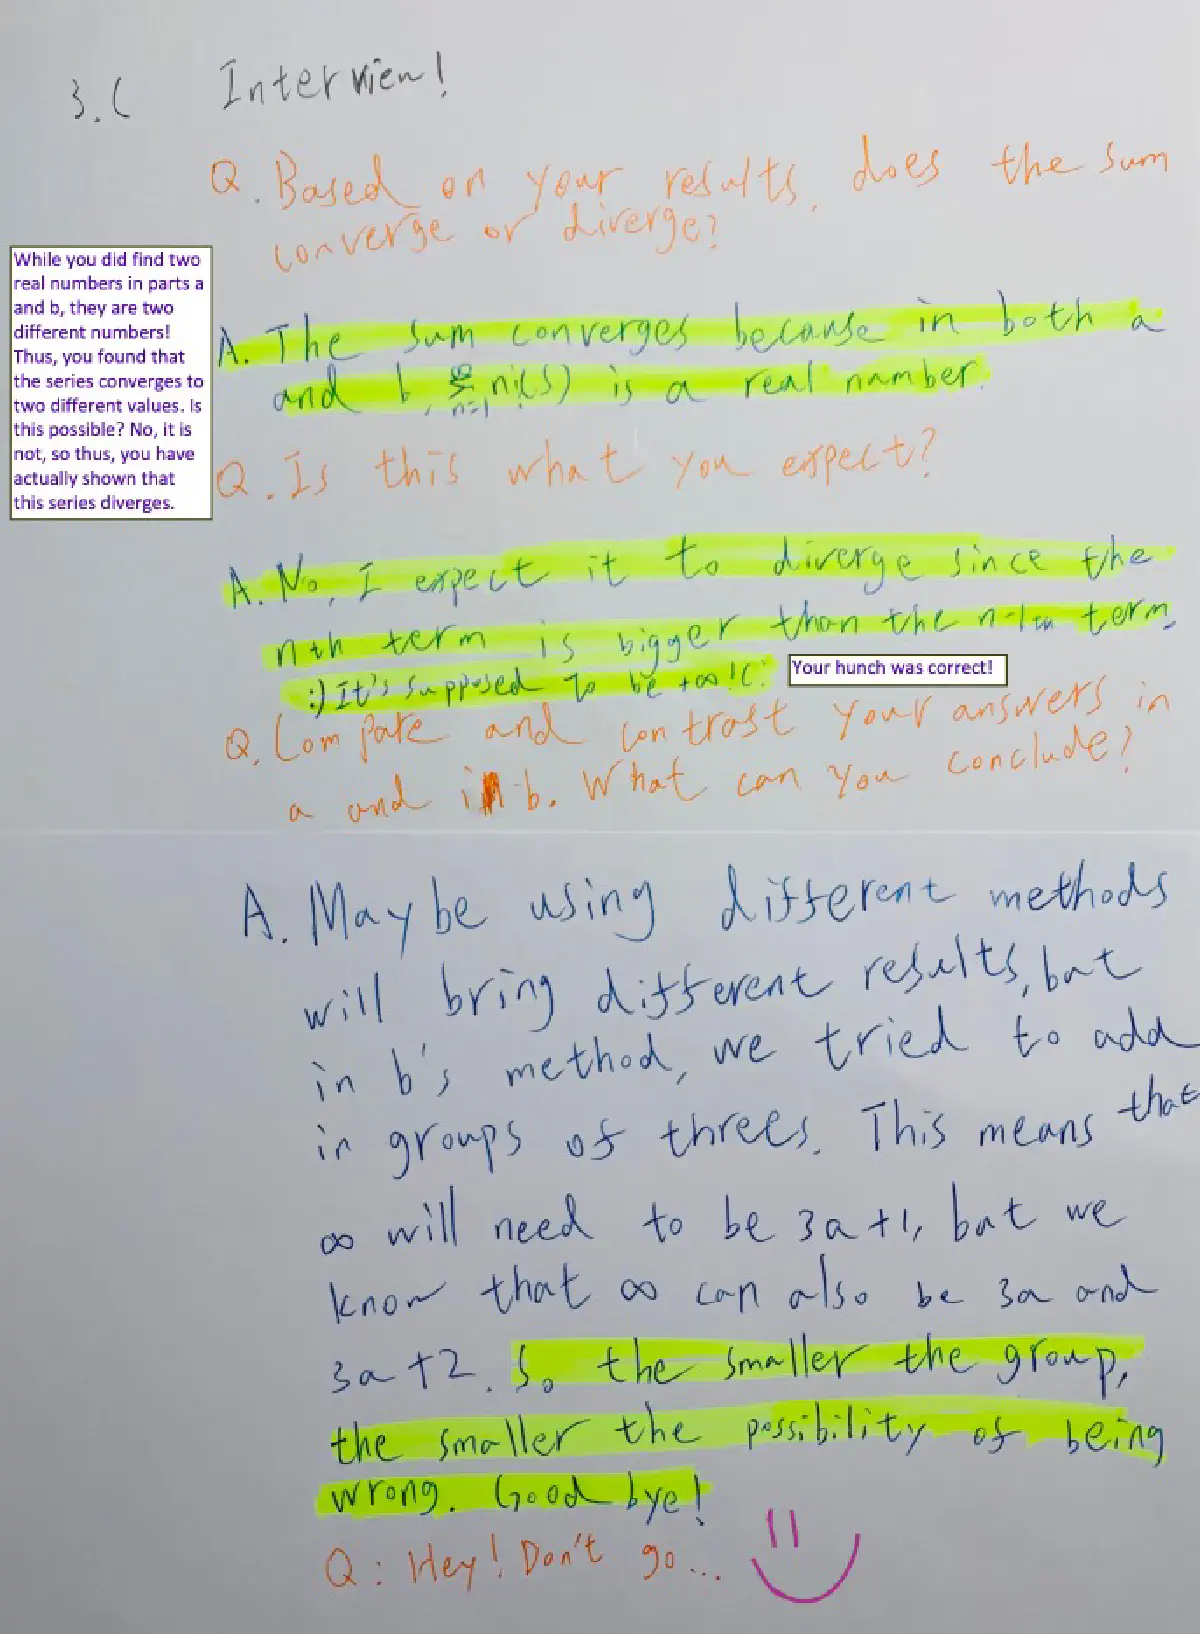 3.C Interview!
Q. Based on your results, does the sum
converge or diverge?
While you did find two
real numbers in parts a
and b, they are two
different numbers!
Thus, you found that
the series converges to
two different values. Is
this possible? No, it is
not, so thus, you have
actually shown that
this series diverges.
A. The sum converges because in both a
and b, ∞Σn=1 n(S) is a real number.
Q. Is this what you expect?
A. No, I expect it to diverge since the
nth term is bigger than the n-1th term.
:) It's supposed to be +∞!(:
Your hunch was correct!
Q. Compare and contrast your answers in
a and in b. What can you conclude?
A. Maybe using different methods
will bring different results, but
in b's method, we tried to add
in groups of threes. This means that
∞ will need to be 3a+1, but we
know that ∞ can also be 3a and
3a+2. So the smaller the group,
the smaller the possibility of being
wrong. Good bye!
Q: Hey! Don't go...